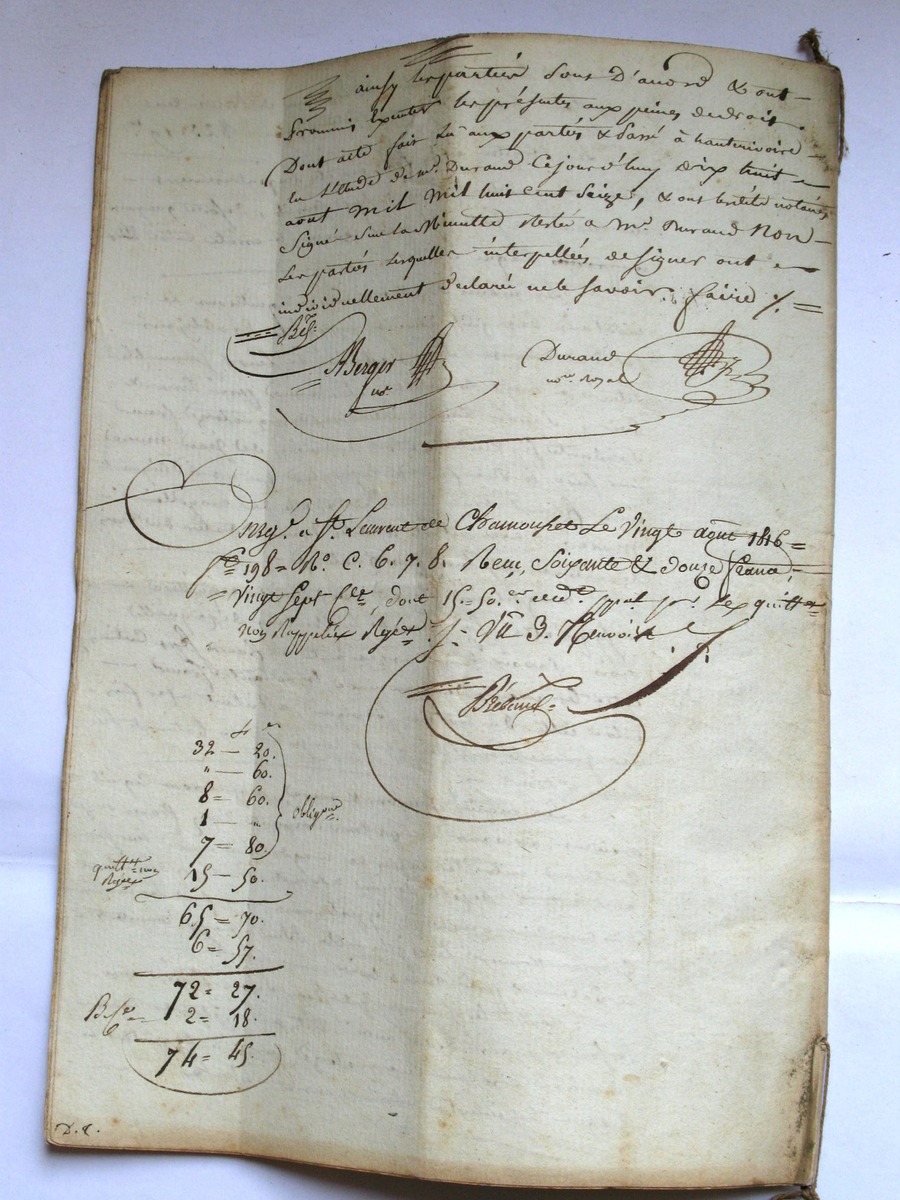 ainsy les parties sont D'accord & ont
promis Exécuter les présentes aux peines de droit
Dont acte fait Lu aux parties & passé à hauterivoire
En l'Etude de me. Durand Ce jour d'huy dix huit
aout Mil Mil huit cent Seize, & ont lesdits notaires
Signé Sur la Minutte Restée a Me Durand Non
Les parties Lesquelles interpellées de signer ont
individuellement declaré ne le Savoir faire /.
ABerger
Durand
nre. royal
Enrgé. a St. Laurent de Chamousset Le Vingt août 1816
fo 198 = Ro C. 6. 7. 8. Reçu Soixante & douze francs
Vingt Sept Cmes, dont 15-50 Les quittces
non Rappellées
fr cs
32 — 20.
" — 60.
8 = 60.
1 — "
7 = 80.
obligon
quittces non
15 — 50.
65 = 70.
6 = 57.
72 = 27.
2 = 18.
74 = 45.
D. C.